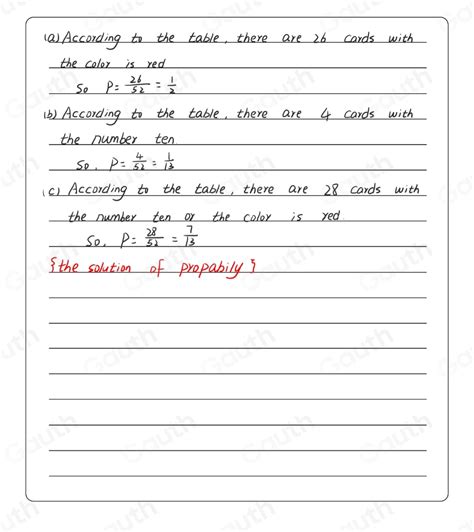 (a) According to the table, there are 26 cards with
the color is red
So P = 26/52 = 1/2
(b) According to the table, there are 4 cards with
the number ten
So, P = 4/52 = 1/13
(c) According to the table, there are 28 cards with
the number ten or the color is red
So, P = 28/52 = 7/13
{the solution of propabily}